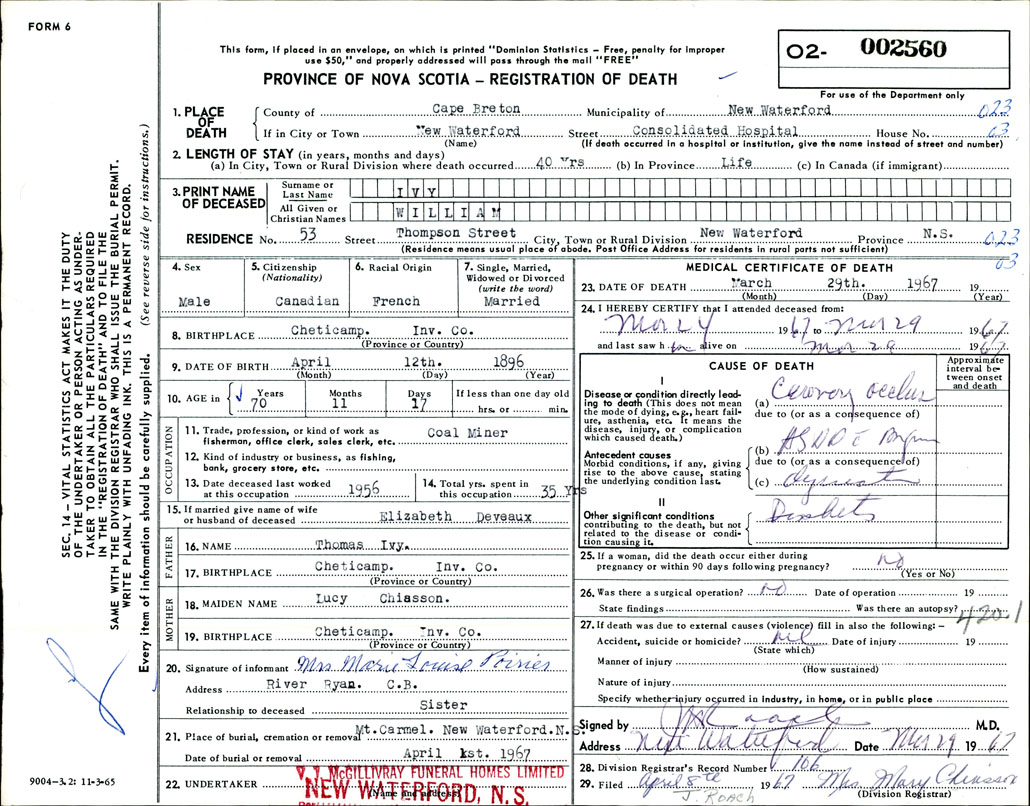 FORM 6
This form, if placed in an envelope, on which is printed "Dominion Statistics – Free, penalty for improper
use $50," and properly addressed will pass through the mail "FREE"
PROVINCE OF NOVA SCOTIA – REGISTRATION OF DEATH
02- 002560
For use of the Department only
1. PLACE OF DEATH County of Cape Breton Municipality of New Waterford 023
If in City or Town New Waterford Street Consolidated Hospital House No. 03
(Name) (If death occurred in a hospital or institution, give the name instead of street and number)
2. LENGTH OF STAY (in years, months and days)
(a) In City, Town or Rural Division where death occurred 40 Yrs (b) In Province Life (c) In Canada (if immigrant)
3. PRINT NAME OF DECEASED Surname or Last Name IVY
All Given or Christian Names WILLIAM
RESIDENCE No. 53 Street Thompson Street City, Town or Rural Division New Waterford Province N.S. 023
(Residence means usual place of abode. Post Office Address for residents in rural parts not sufficient) 03
4. Sex Male
5. Citizenship (Nationality) Canadian
6. Racial Origin French
7. Single, Married, Widowed or Divorced (write the word) Married
8. BIRTHPLACE Cheticamp. Inv. Co.
(Province or Country)
9. DATE OF BIRTH April 12th. 1896
(Month) (Day) (Year)
10. AGE in Years 70 Months 11 Days 17 If less than one day old hrs. or min.
OCCUPATION
11. Trade, profession, or kind of work as fisherman, office clerk, sales clerk, etc. Coal Miner
12. Kind of industry or business, as fishing, bank, grocery store, etc.
13. Date deceased last worked at this occupation 1956
14. Total yrs. spent in this occupation 35 Yrs
15. If married give name of wife or husband of deceased Elizabeth Deveaux
FATHER
16. NAME Thomas Ivy.
17. BIRTHPLACE Cheticamp. Inv. Co.
(Province or Country)
MOTHER
18. MAIDEN NAME Lucy Chiasson.
19. BIRTHPLACE Cheticamp. Inv. Co.
(Province or Country)
20. Signature of informant Mrs Marie Louise Poirier
Address River Ryan. C.B.
Relationship to deceased Sister
21. Place of burial, cremation or removal Mt. Carmel. New Waterford. N.S.
Date of burial or removal April 1st. 1967
22. UNDERTAKER V. J. McGILLIVRAY FUNERAL HOMES LIMITED
(Name and address) NEW WATERFORD, N. S.
MEDICAL CERTIFICATE OF DEATH
23. DATE OF DEATH March 29th. 1967 19
(Month) (Day) (Year)
24. I HEREBY CERTIFY that I attended deceased from:
Mar 24 1967 to Mar 29 1967
and last saw him alive on Mar 29 1967
CAUSE OF DEATH
Approximate interval between onset and death
I
Disease or condition directly leading to death (This does not mean the mode of dying, e.g., heart failure, asthenia, etc. It means the disease, injury, or complication which caused death.)
(a) Coronary occlus
due to (or as a consequence of)
Antecedent causes
Morbid conditions, if any, giving rise to the above cause, stating the underlying condition last.
(b)
due to (or as a consequence of)
(c)
II
Other significant conditions contributing to the death, but not related to the disease or condition causing it.
Diabetes
25. If a woman, did the death occur either during pregnancy or within 90 days following pregnancy? no
(Yes or No)
26. Was there a surgical operation? no Date of operation 19
State findings Was there an autopsy?
420.1
27. If death was due to external causes (violence) fill in also the following: –
Accident, suicide or homicide? nil Date of injury 19
(State which)
Manner of injury
(How sustained)
Nature of injury
Specify whether injury occurred in industry, in home, or in public place
Signed by Roach M.D.
Address New Waterford Date Mar 29 1967
28. Division Registrar's Record Number 106
29. Filed April 8th 1967 Mrs. Mary Chiasson
J. ROACH (Division Registrar)
SEC. 14 – VITAL STATISTICS ACT MAKES IT THE DUTY
OF THE UNDERTAKER OR PERSON ACTING AS UNDER-
TAKER TO OBTAIN ALL THE PARTICULARS REQUIRED
IN THE "REGISTRATION OF DEATH" AND TO FILE THE
SAME WITH THE DIVISION REGISTRAR WHO SHALL ISSUE THE BURIAL PERMIT.
WRITE PLAINLY WITH UNFADING INK. THIS IS A PERMANENT RECORD.
Every item of information should be carefully supplied. (See reverse side for instructions.)
9004-3.2: 11-3-65